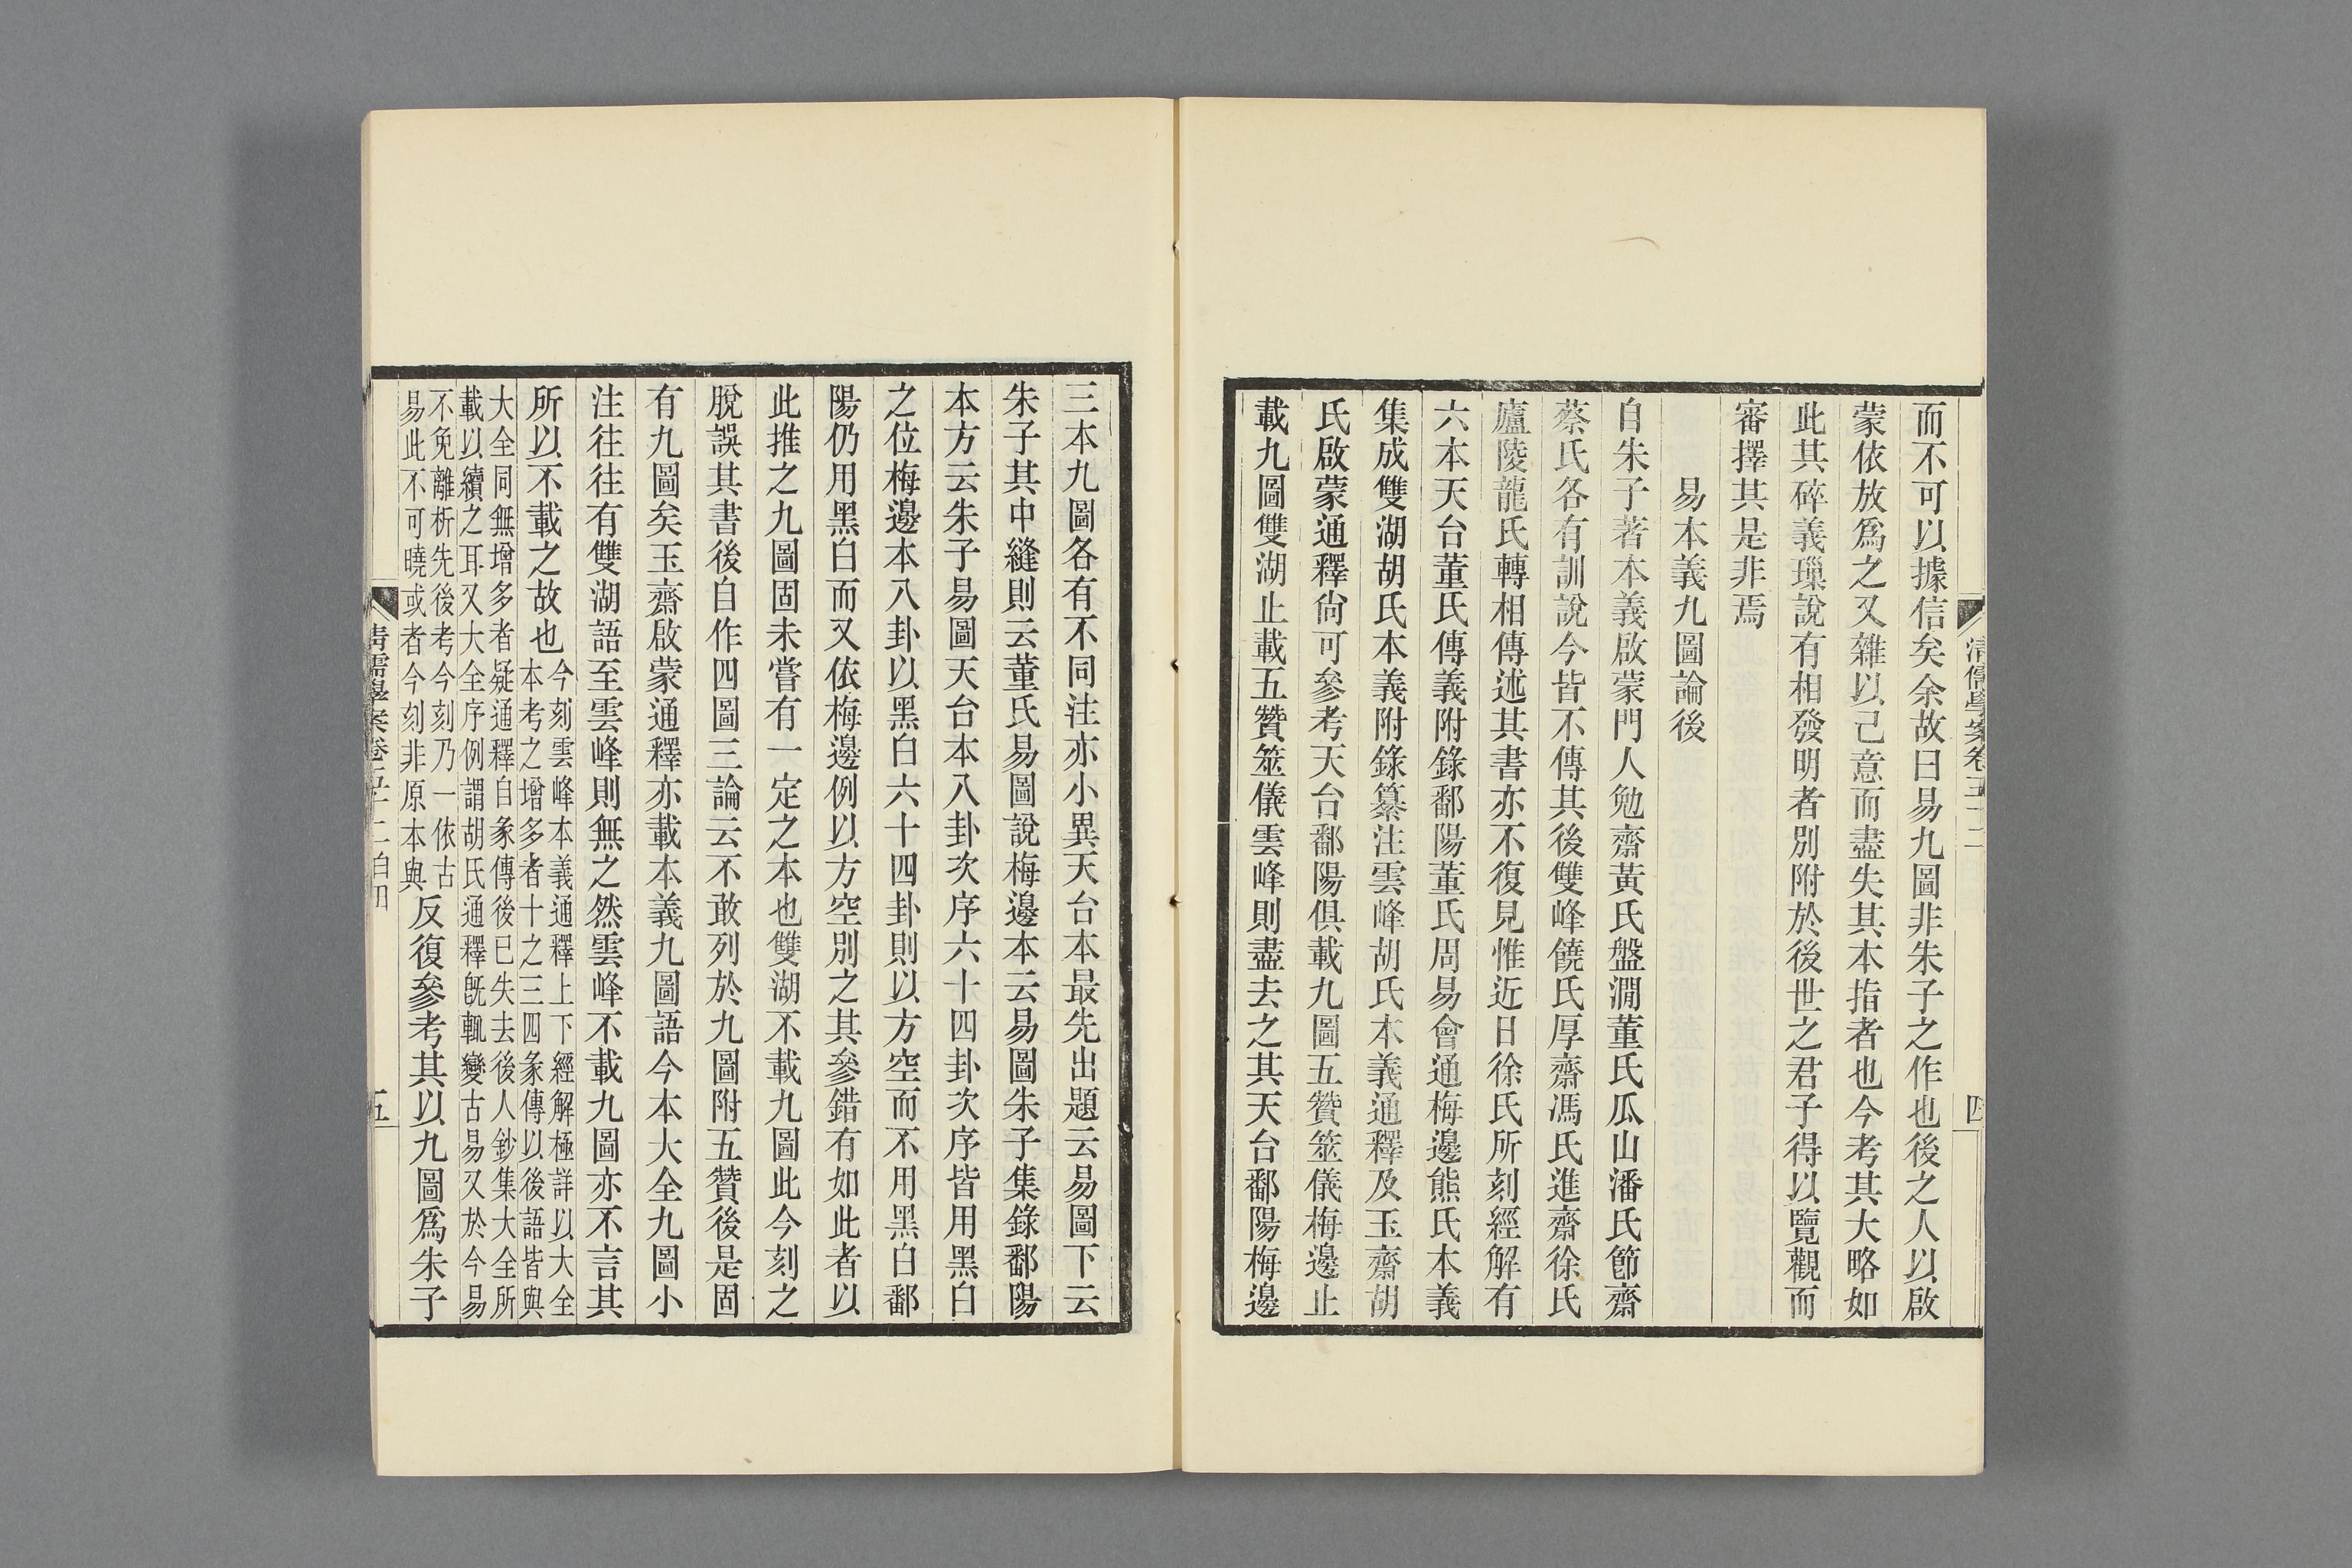 而不可以據信矣余故曰易九圖非朱子之作也後之人以啟
蒙依放爲之又雜以己意而盡失其本指者也今考其大略如
此其碎義璅說有相發明者別附於後世之君子得以覽觀而
審擇其是非焉
易本義九圖論後
自朱子著本義啟蒙門人勉齋黃氏盤澗董氏瓜山潘氏節齋
蔡氏各有訓說今皆不傳其後雙峰饒氏厚齋馮氏進齋徐氏
廬陵龍氏轉相傳述其書亦不復見惟近日徐氏所刻經解有
六本天台董氏傳義附錄鄱陽董氏周易會通梅邊熊氏本義
集成雙湖胡氏本義附錄纂注雲峰胡氏本義通釋及玉齋胡
氏啟蒙通釋尙可參考天台鄱陽俱載九圖五贊筮儀梅邊止
載九圖雙湖止載五贊筮儀雲峰則盡去之其天台鄱陽梅邊
清儒學案卷五十二
四
三本九圖各有不同注亦小異天台本最先出題云易圖下云
朱子其中縫則云董氏易圖說梅邊本云易圖朱子集錄鄱陽
本方云朱子易圖天台本八卦次序六十四卦次序皆用黑白
之位梅邊本八卦以黑白六十四卦則以方空而不用黑白鄱
陽仍用黑白而又依梅邊例以方空別之其參錯有如此者以
此推之九圖固未嘗有一定之本也雙湖不載九圖此今刻之
脫誤其書後自作四圖三論云不敢列於九圖附五贊後是固
有九圖矣玉齋啟蒙通釋亦載本義九圖語今本大全九圖小
注往往有雙湖語至雲峰則無之然雲峰不載九圖亦不言其
所以不載之故也
今刻雲峰本義通釋上下經解極詳以大全
本考之增多者十之三四彖傳以後語皆與
大全同無增多者疑通釋自彖傳後已失去後人鈔集大全所
載以續之耳又大全序例謂胡氏通釋旣輒變古易又於今易
不免離析先後考今刻乃一依古
易此不可曉或者今刻非原本與
反復參考其以九圖爲朱子
清儒學案卷五十二 白田
五